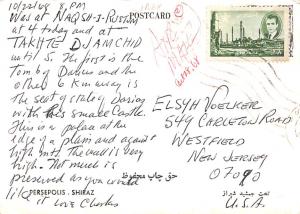 10/22/68 8 PM
POSTCARD
Was at NAQSH-I-RUSTAM
at 4 today and at
TAKHTE DJAMCHID
until 5. The first is the
Tomb of Darius and the
other 6 Km away is
the seat of
with this small Castle.
This is a palace at the
edge of a plain and against
high
high. Not much is
preserved as you would
like it Love Charles
ELSYH VOELKER
549 CARLETON ROAD
WESTFIELD
NEW JERSEY
07090
U.S.A.
PERSEPOLIS - SHIRAZ
حق چاپ محفوظ
تخت جمشید شیراز